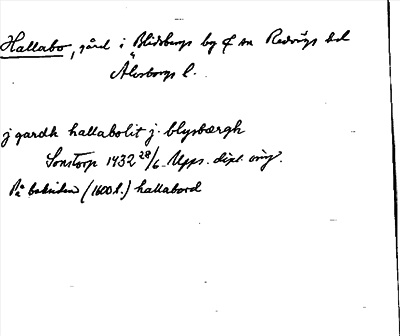 Hallabo, gård i Blidsbergs by o sn Redvägs hd
Älvsborgs l.
j gardh hallabolit j blysbærgh
Sonstorp 1432 28/6 Upps. dipl. orig.
På baksidan (1600t.) hallabord